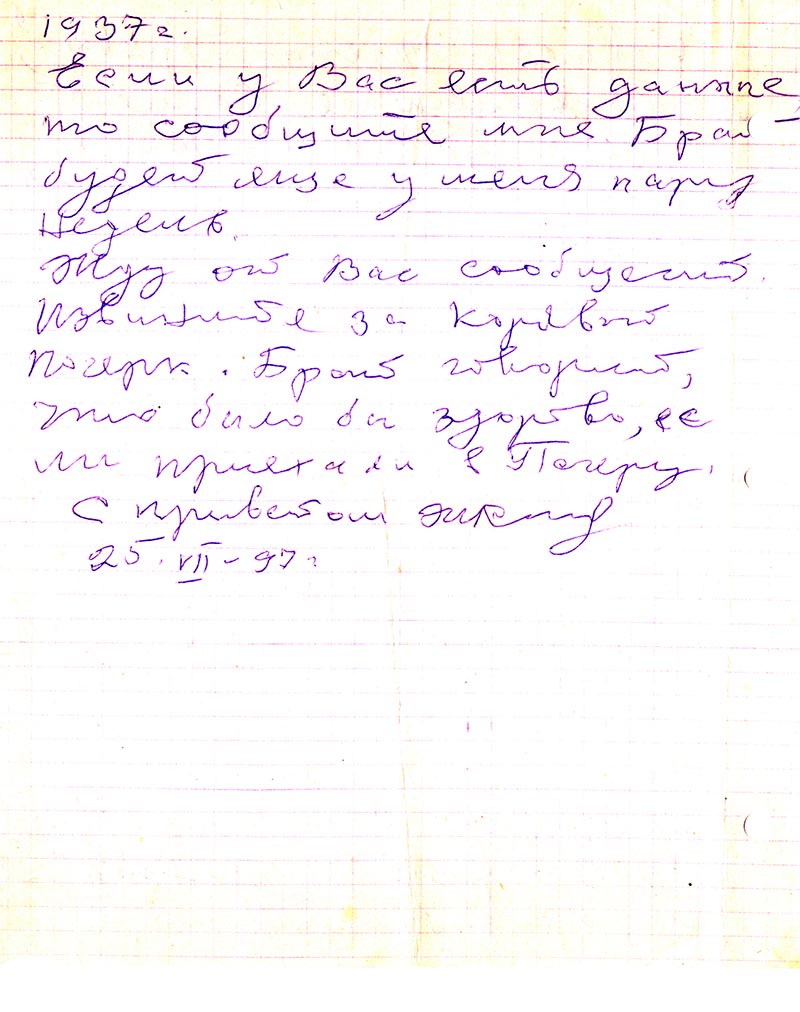 1937 г.
Если у Вас есть данные,
то сообщите мне. Брат
будет еще у меня пару
недель.
Жду от Вас сообщений.
Извините за корявый
почерк. Брат говорит,
что было бы здорово, ес
ли приехали в Печору.
С приветом
25.VII-97 г.